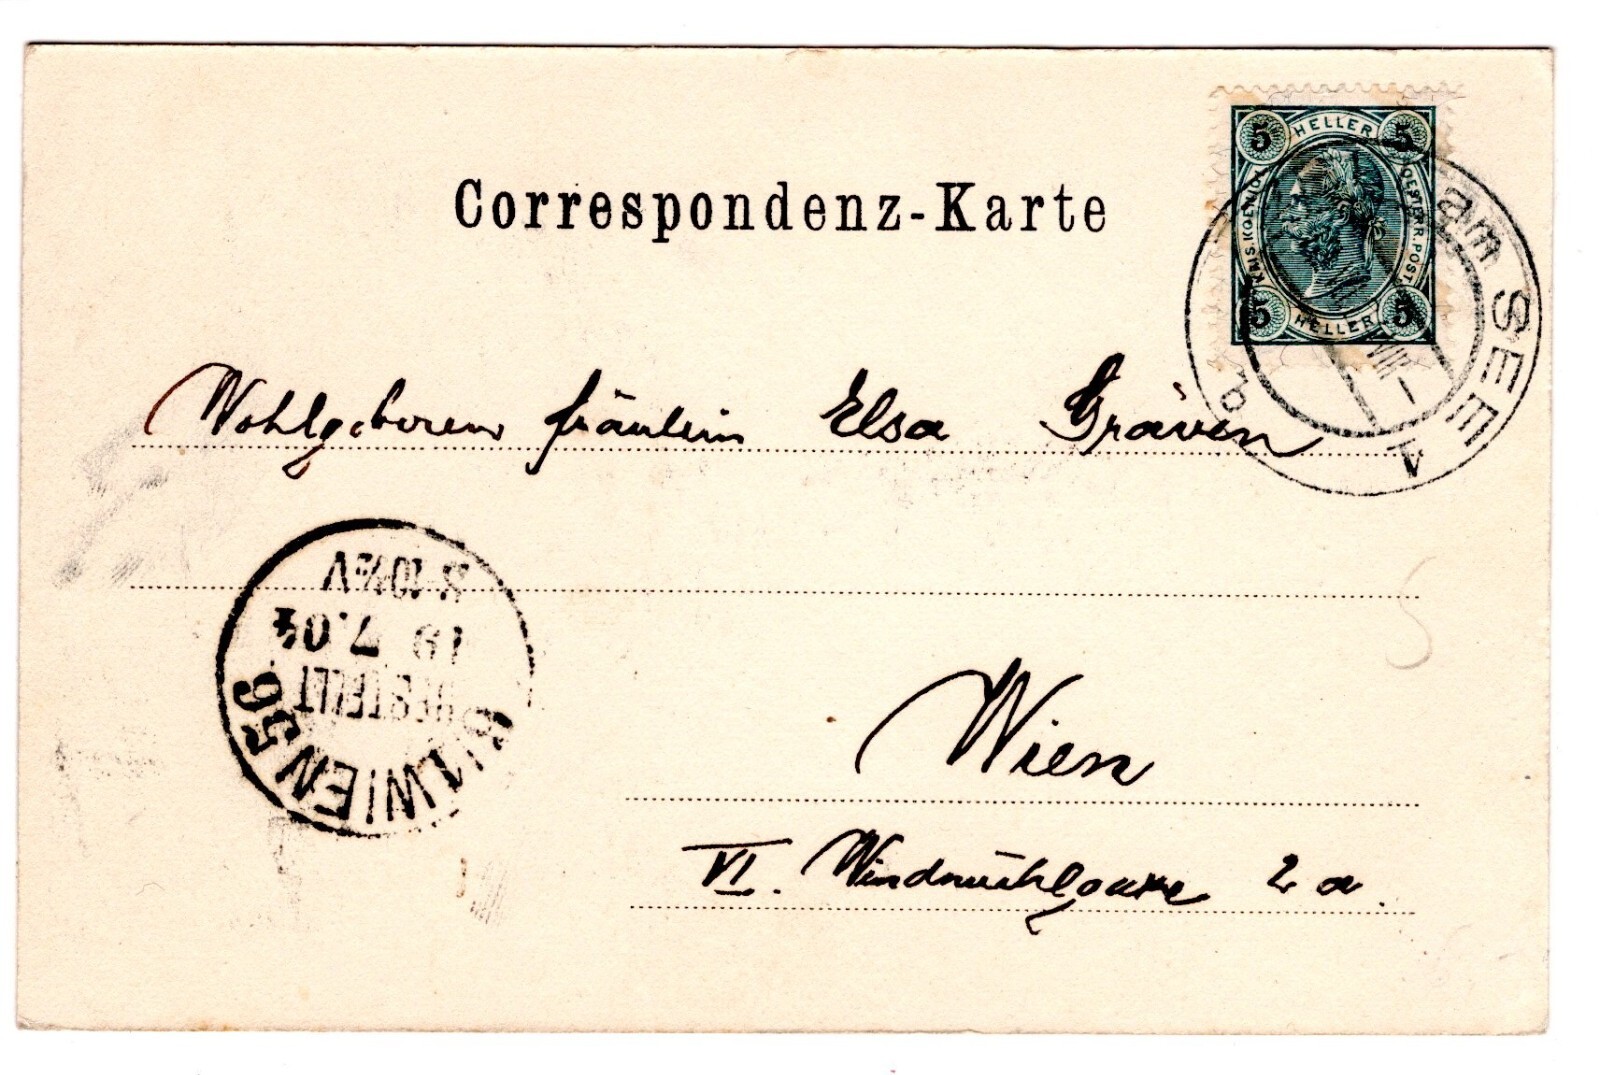 Correspondenz-Karte
5 HELLER 5
KAIS. KOENIGL.
OESTERR. POST
5 HELLER 5
am SEE 1
VIII
b
Wohlgeboren Fräulein Elsa Gräven
Wien
VI. Windmühlgasse 2 a.
6/1 WIEN 56
BESTELLT
7.04